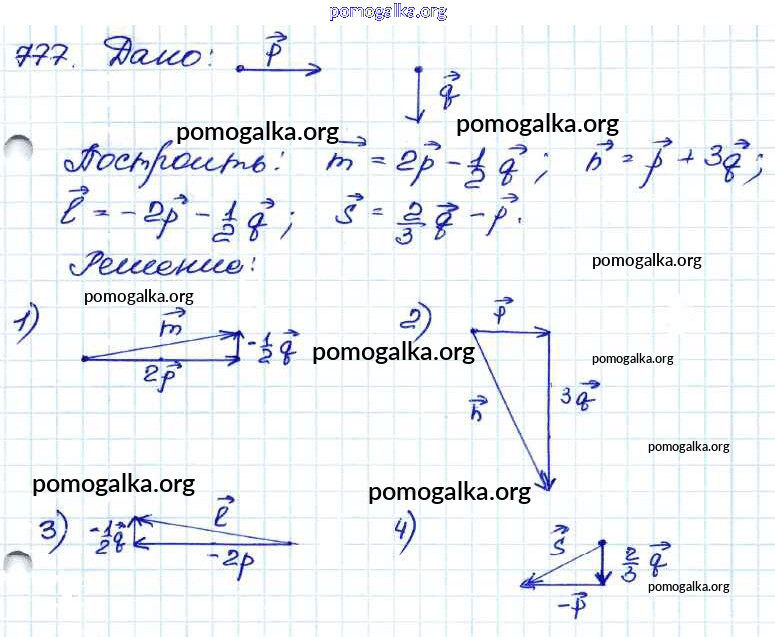 pomogalka.org
777. Дано: p⃗ q⃗
pomogalka.org pomogalka.org
Построить: m⃗ = 2p⃗ - 1/2 q⃗; n⃗ = p⃗ + 3q⃗;
l⃗ = -2p⃗ - 1/2 q⃗; s⃗ = 2/3 q⃗ - p⃗.
Решение: pomogalka.org
pomogalka.org
1) m⃗ -1/2 q⃗ 2p⃗
2) p⃗ n⃗ 3q⃗
pomogalka.org pomogalka.org
pomogalka.org
pomogalka.org pomogalka.org
3) -1/2 q⃗ l⃗ -2p
4) s⃗ 2/3 q⃗ -p⃗
pomogalka.org